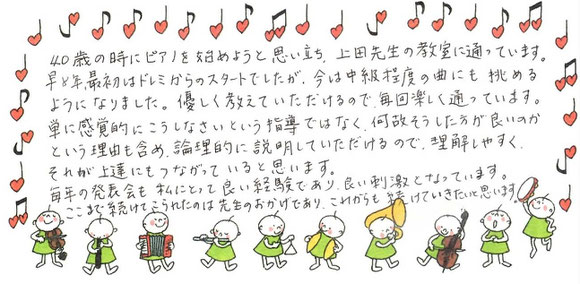 40歳の時にピアノを始めようと思い立ち、上田先生の教室に通っています。
早8年、最初はドレミからのスタートでしたが、今は中級程度の曲にも挑める
ようになりました。優しく教えていただけるので、毎回楽しく通っています。
単に感覚的にこうしなさいという指導ではなく、何故そうした方が良いのか
という理由も含め、論理的に説明していただけるので、理解しやすく、
それが上達にもつながっていると思います。
毎年の発表会も私にとって良い経験であり、良い刺激となっています。
ここまで続けてこられたのは先生のおかげであり、これからも続けていきたいと思います。